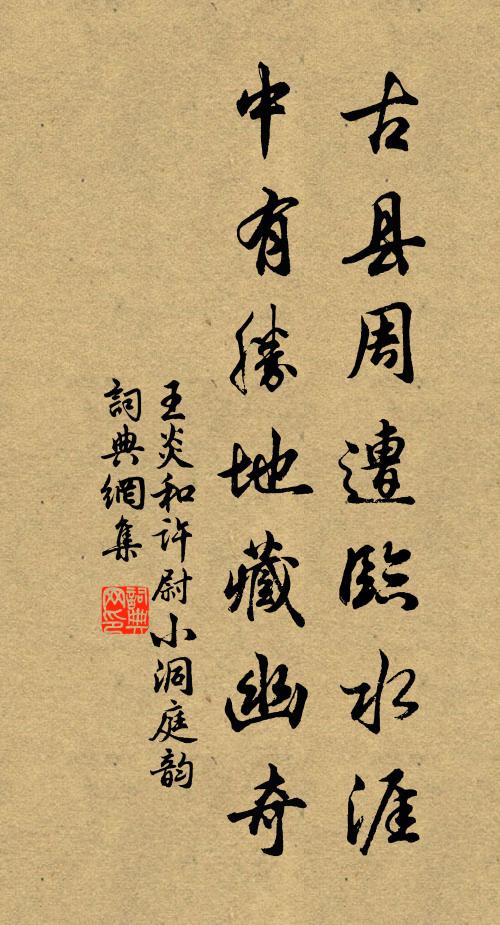 古县周遭臨水涯
中有勝地藏幽奇
王炎和许尉小洞庭韵
詞典網集
詞典网印